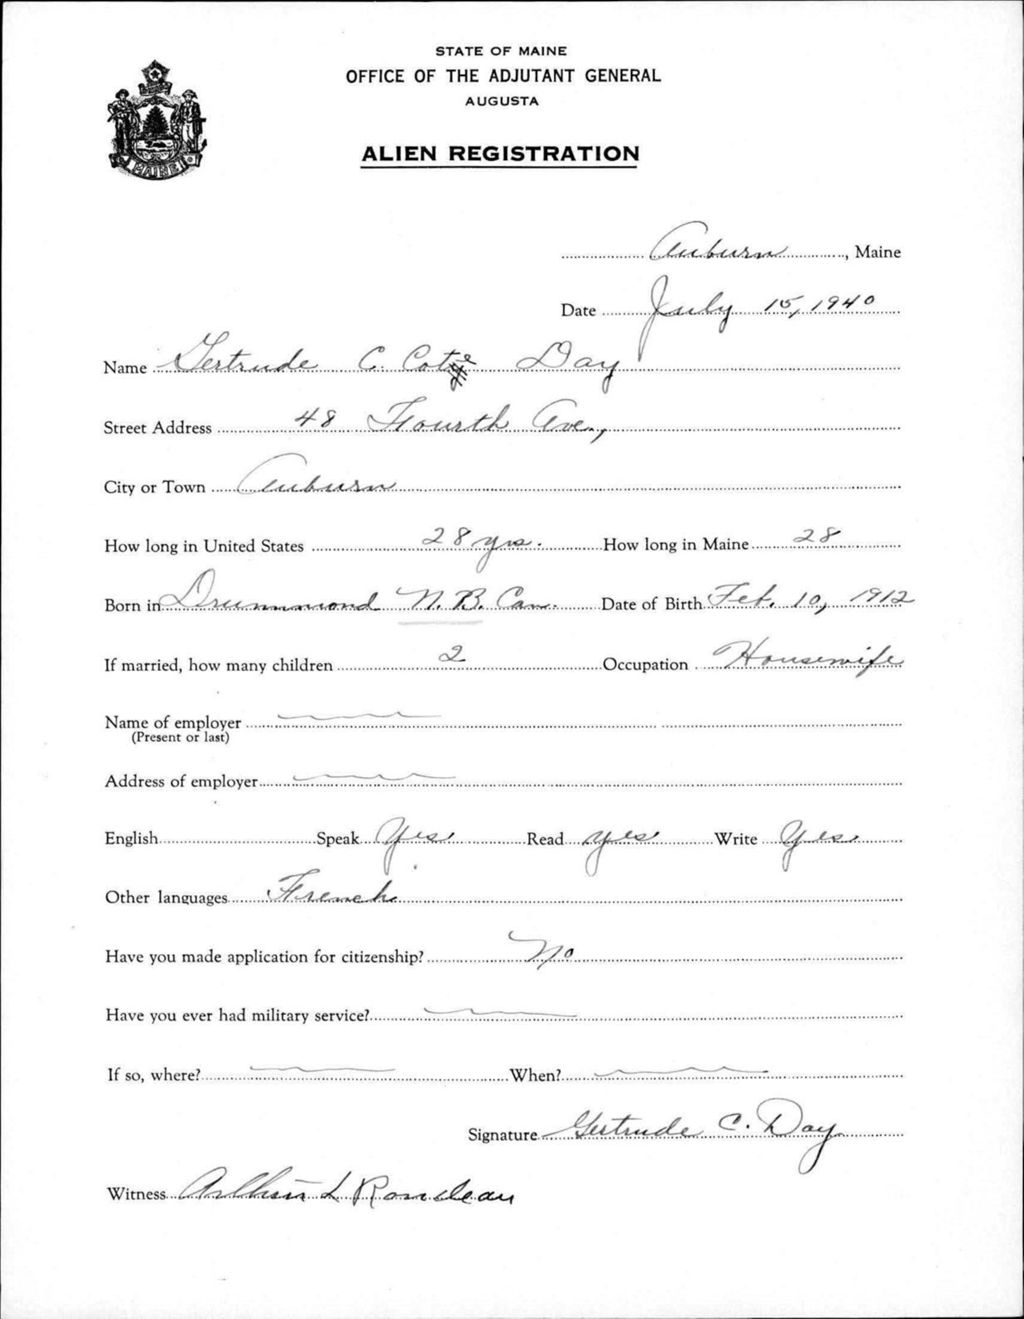 STATE OF MAINE
OFFICE OF THE ADJUTANT GENERAL
AUGUSTA
ALIEN REGISTRATION
MAINE
Auburn, Maine
Date July 15, 1940
Name Gertrude C. Cote Day
Street Address 48 Fourth Ave.,
City or Town Auburn
How long in United States 28 yrs. How long in Maine 28
Born in Drummond N. B. Can. Date of Birth Feb. 10, 1912
If married, how many children 2 Occupation Housewife
Name of employer
(Present or last)
Address of employer
English Speak Yes Read yes Write Yes
Other languages French
Have you made application for citizenship? No
Have you ever had military service?
If so, where? When?
Signature Gertrude C. Day
Witness L Rondeau